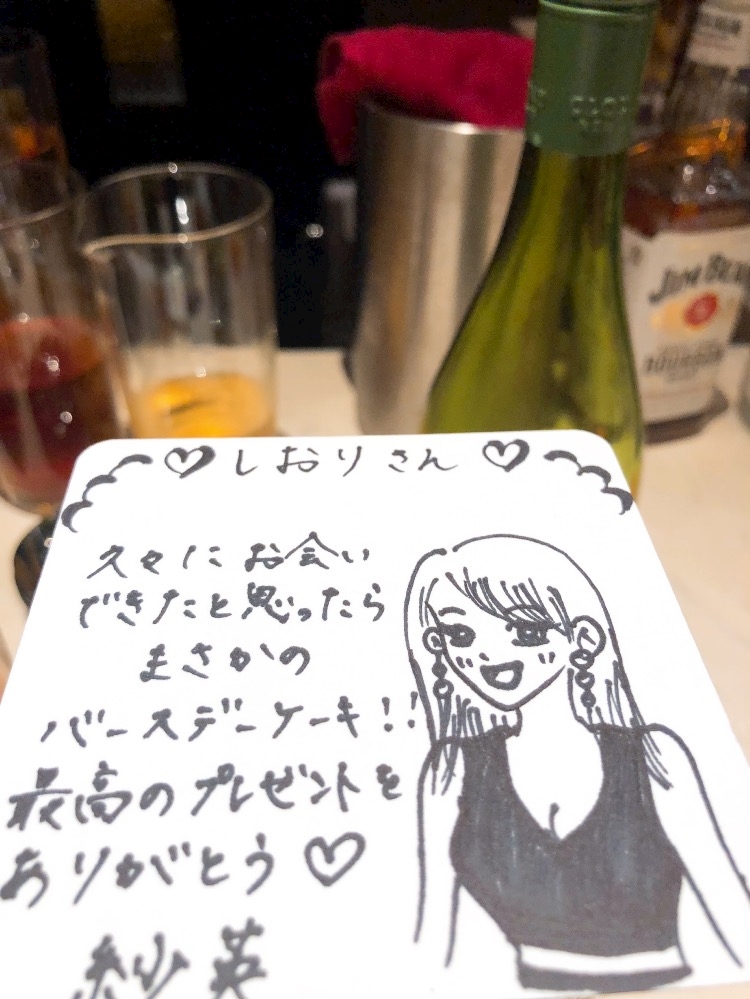 ♡ しおりさん ♡
久々に お会い
できたと思ったら
まさかの
バースデーケーキ!!
最高のプレゼントを
ありがとう ♡
紗英
JIM BEAM
BOURBON